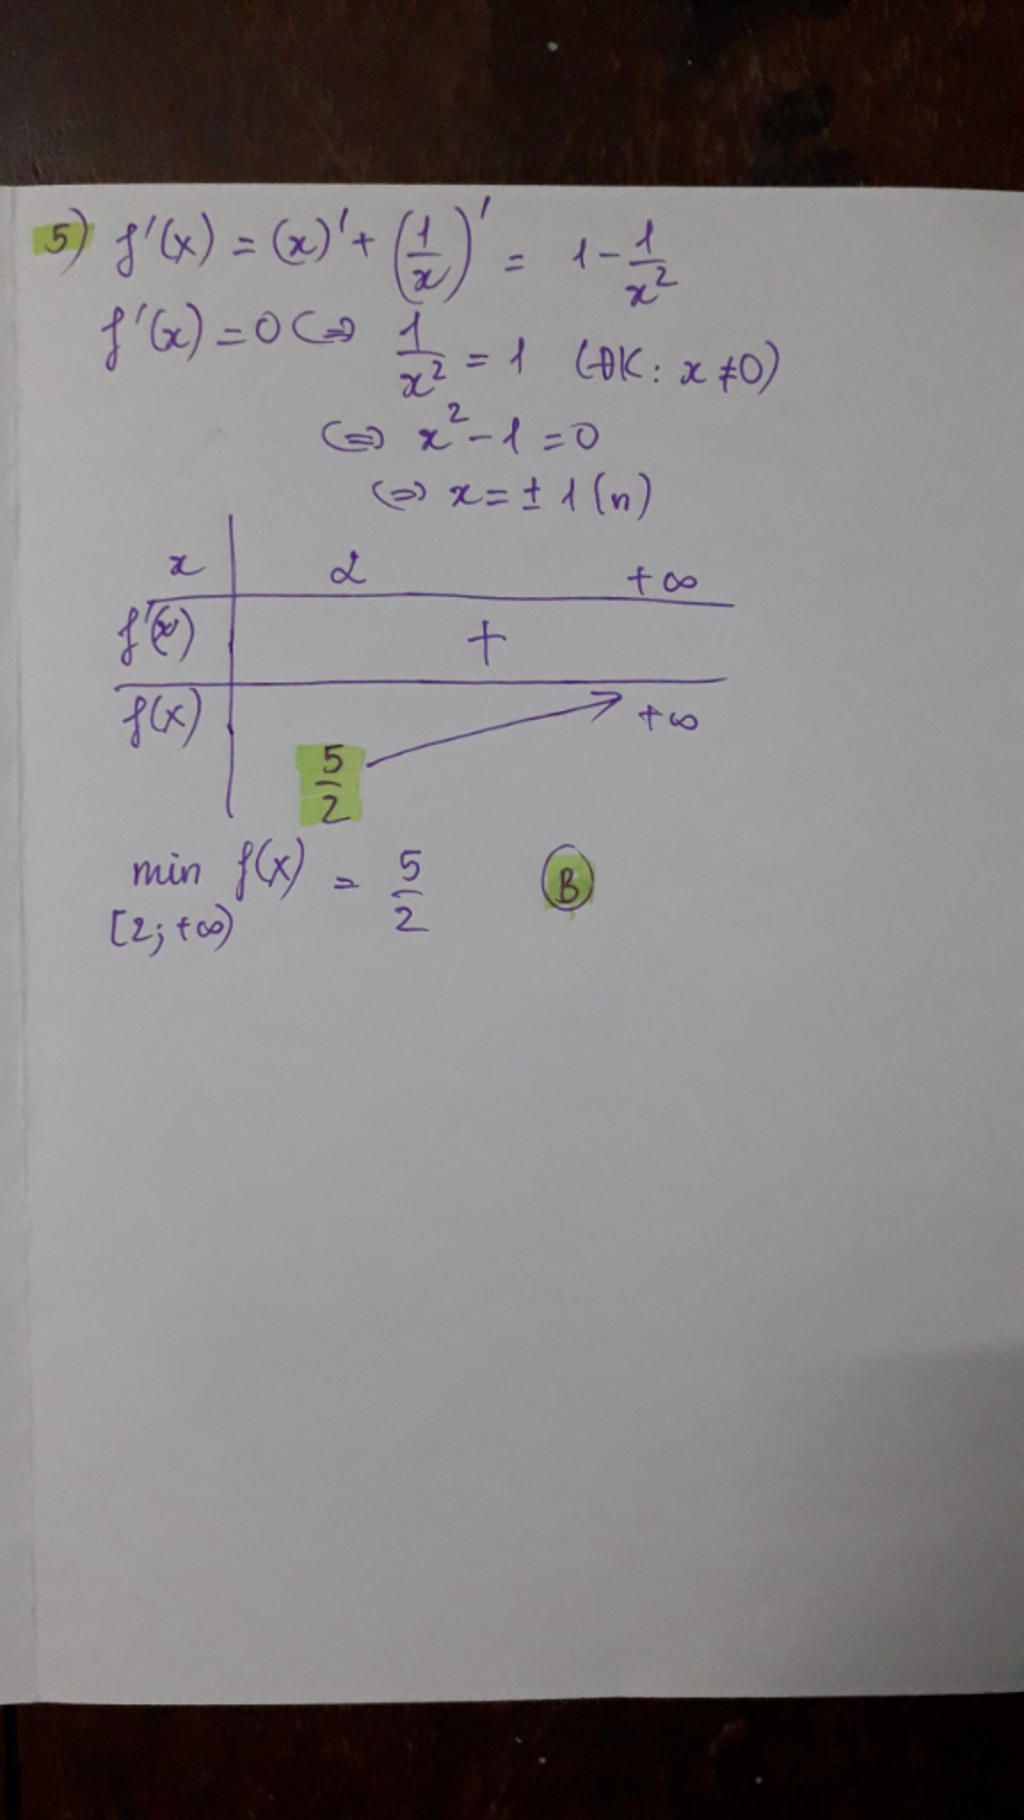 5) f'(x) = (x)' + (1/x)' = 1 - 1/x²
f'(x) = 0 ⇔ 1/x² = 1 (ĐK: x ≠ 0)
⇔ x² - 1 = 0
⇔ x = ± 1 (n)
x 2 +∞
f'(x) +
f(x) 5/2 +∞
min f(x) = 5/2 B
[2; +∞)